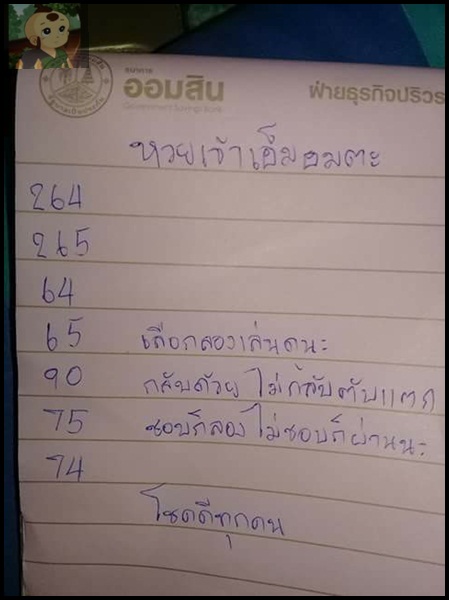 ธนาคาร
ออมสิน
Government Savings Bank
ฝ่ายธุรกิจปริวร
หวยเข้าเอ็มอมตะ
264
265
64
65 เลือกลองเล่นดนะ
90 กลับด้วย ไม่กลับตับแตก
75 ชอบก็ลอง ไม่ชอบก็ผ่านนะ
74
โชคดีทุกคน